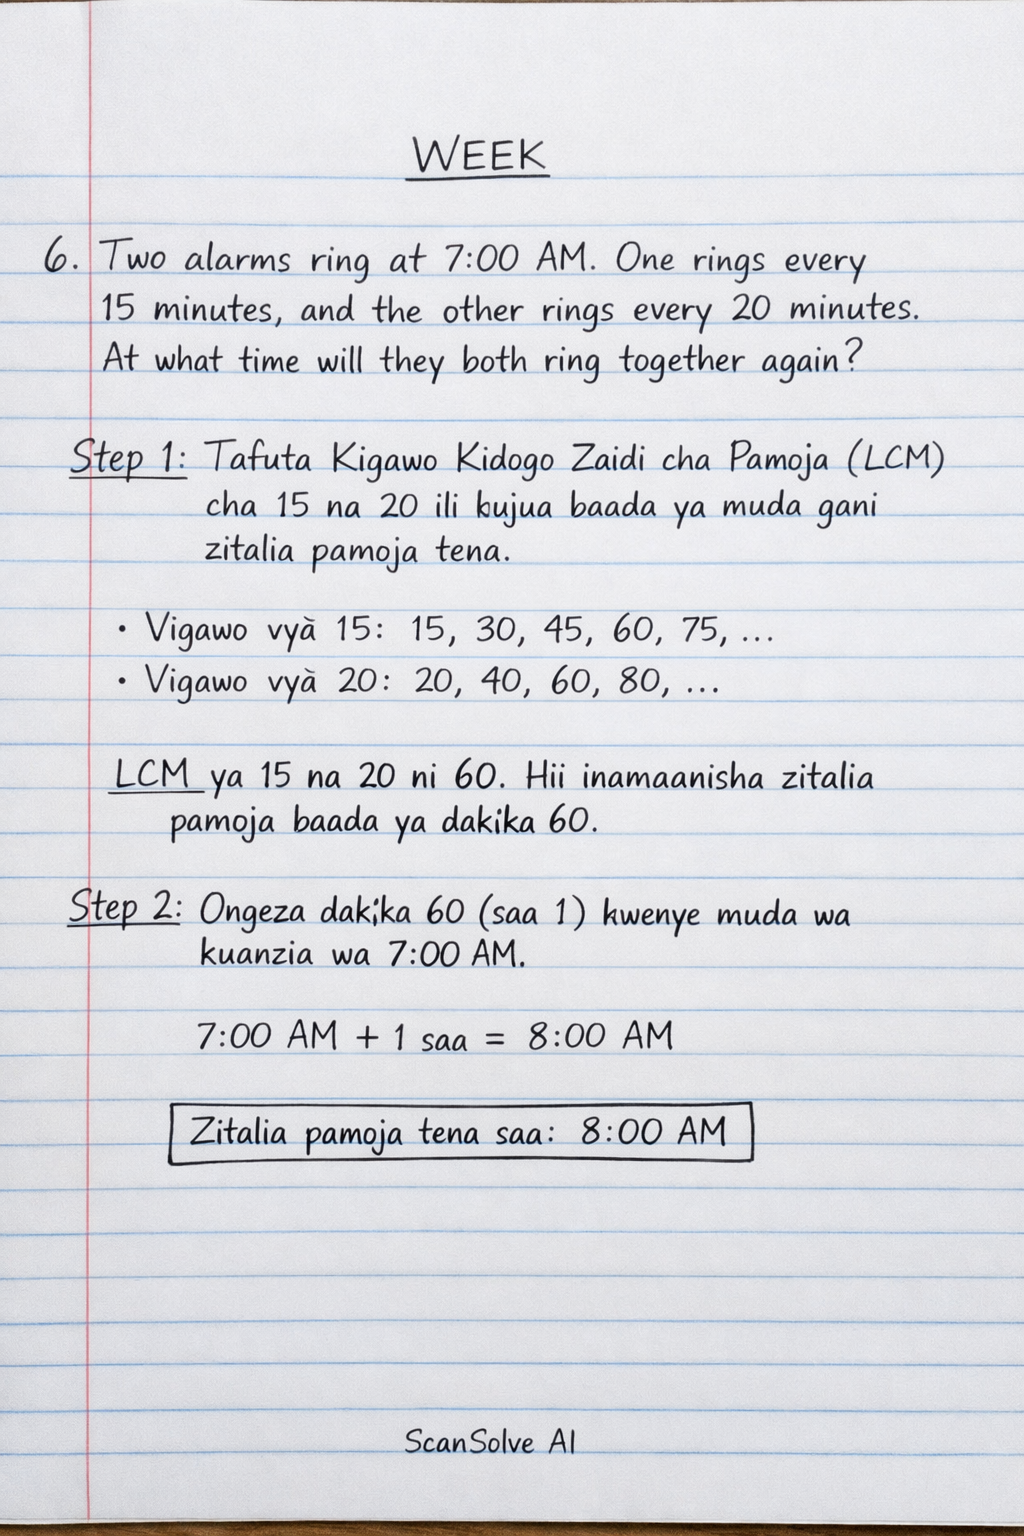 WEEK
6. Two alarms ring at 7:00 AM. One rings every
15 minutes, and the other rings every 20 minutes.
At what time will they both ring together again?
Step 1: Tafuta Kigawo Kidogo Zaidi cha Pamoja (LCM)
cha 15 na 20 ili kujua baada ya muda gani
zitalia pamoja tena.
• Vigawo vyà 15: 15, 30, 45, 60, 75, ...
• Vigawo vyà 20: 20, 40, 60, 80, ...
LCM ya 15 na 20 ni 60. Hii inamaanisha zitalia
pamoja baada ya dakika 60.
Step 2: Ongeza dakika 60 (saa 1) kwenye muda wa
kuanzia wa 7:00 AM.
7:00 AM + 1 saa = 8:00 AM
Zitalia pamoja tena saa: 8:00 AM
ScanSolve AI